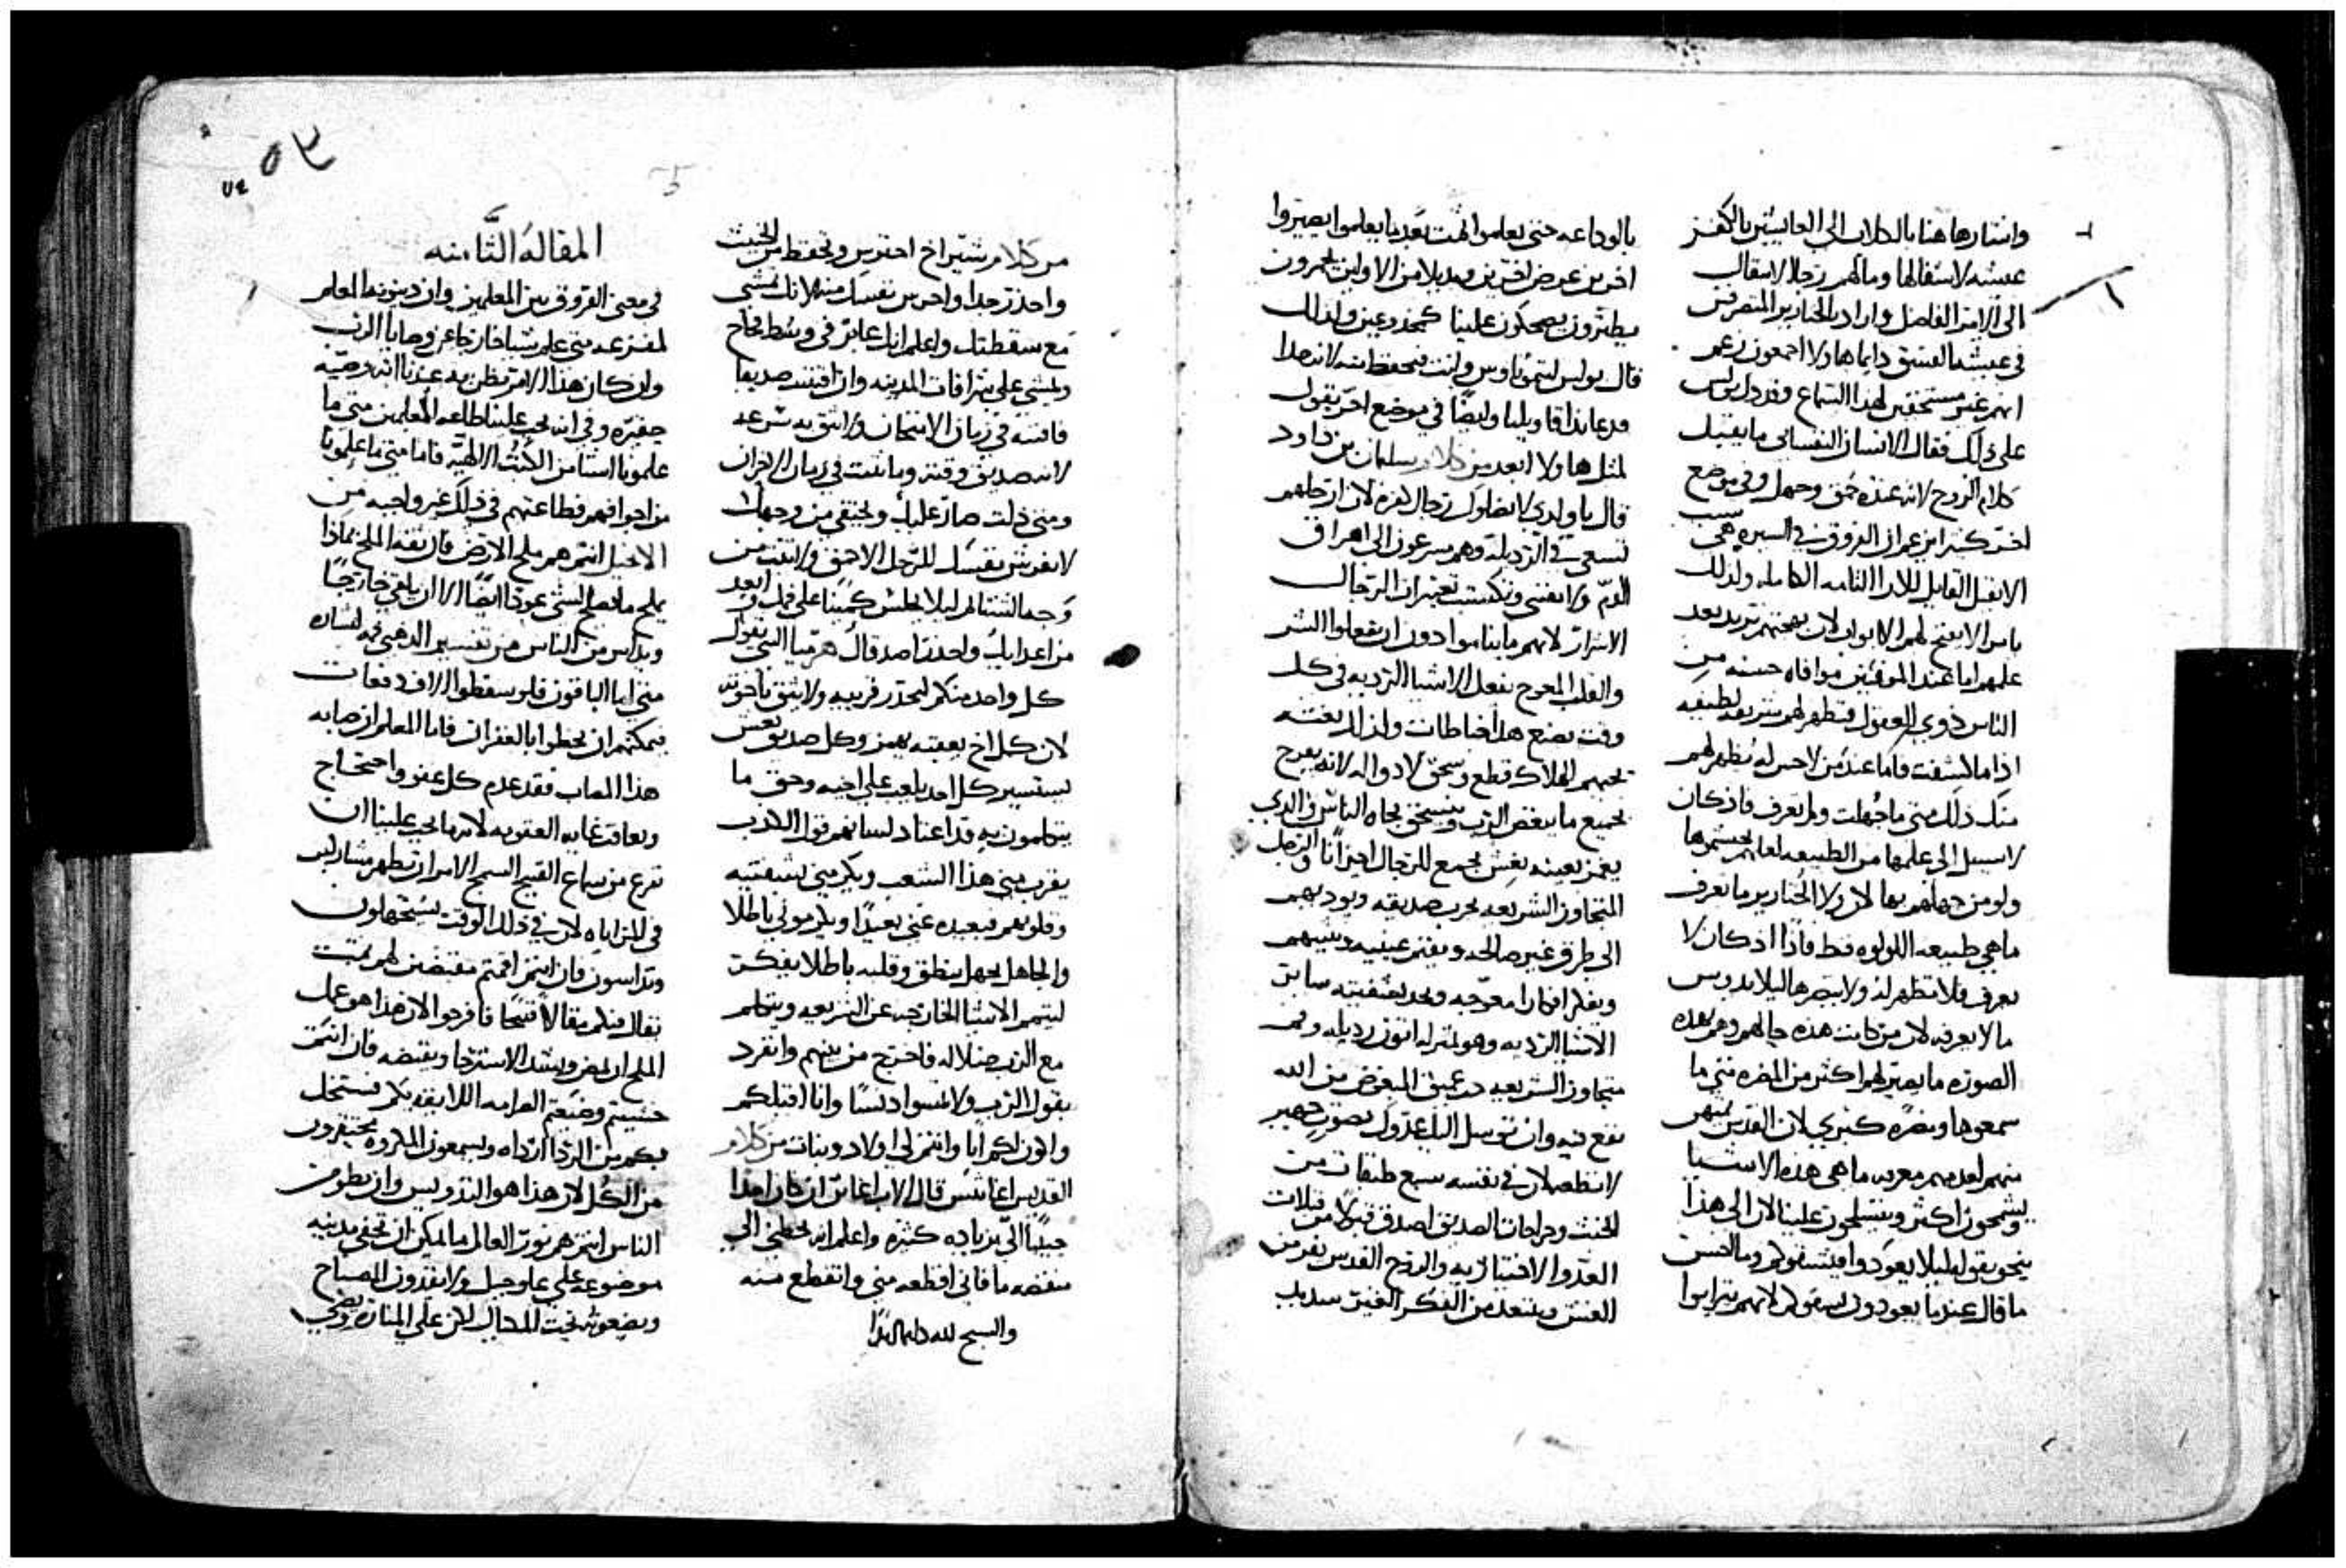 واشار هاهنا بالكلاب الى العايشين بالكفر
عيشه لا شفا لها وما لهم رجا الانتقال
الى الامر الفاضل واراد بالخنازير المتمرغين
في عيشه الفسق دايما هاولا اجمعون زعم
انهم غير مستحقين لهذا السماع وقد دل بولس
على ذلك فقال الانسان النفساني ما يقبل
كلام الروح لانه عنده حمق وجهل وفي موضع
الانفس القابل للارا التامه الكامله ولذلك
علمهم اياها عند الموفقين موافاه حسنه من
الناس ذوي العقول فتظهر لهم شريفه لطيفه
اذا ما كشفت فاما عند من لا حس له تظهر لهم
منك ذلك متى ما جهلت ولم تعرف فاذ كان
لا سبيل الى علمها من الطبيعه لعلهم يحتشموها
ولو من جهلهم بها لان ولا الخنازير ما تعرف
ما هي طبيعه اللولوه قط فاذا اذ كان لا
يعرف فلا تظهر له ولا يبصرها ليلا يدوس
ما لا يعرفه لان من كانت هذه حالهم وهم بهذه
الصوره ما يصير لهم اكثر من المضره متى ما
سمعوها ومضره كبرى لان القدس يمتهن
منهم لعدمهم معرفه ما هي هذه الاشيا
ويشمخون اكثر ويتسلحون علينا لان الى هذا
ما قال عندما يعودون يشقوكم لانهم يترايوا
بالوداعه حتى يعلموا ثمت بعد ما يعلموا يصيروا
اخرين عوض اخرين وبديلا من الاولين يجهرون
يطنزون يضحكون علينا كمخدوعين ولذلك
قال بولس لتيموثاوس وانت فتحفظ منه لانه جدا
قد عاند اقاويلنا وايضا في موضع اخر يقول
لمثل هاولا ابعد من كلام سليمان بن داود
قال يا ولدي لا يضلوك رجال كفره لان ارجلهم
تسعى في الرذيله وهم مسرعون الى اهراق
الدم
الاشرار لانهم ما يناموا دون ان يفعلوا الشر
والقلب المعوج يفعل الاشيا الرديه في كل
وقت يصنع هذا اختلاطات ولذلك بغته
يجيهم الهلاك قطع وسحق لا دوا له لانه يفرح
بجميع ما يبغض الرب
يغمز بعينه بغش يجمع للرجال احزانا والرجل
المتجاوز الشريعه يجرب صديقه ويوديهم
الى طرق غير صالحه
ويفكر افكارا معوجه
متجاوز الشريعه
تقع فيه وان توسل اليك عدوك بصوت جهير
لا تطعه لان في نفسه سبع طبقات من
الخبث وجراحات الصديق اصدق قبولا من قبلات
العدوا الاختياريه والروح القدس يفر من
الغش ويبتعد من الفكر
٥٣
من كلام شيراخ احترس وتحفظ من الخبيث
واحذر جدا واحرس نفسك منه لانك تمشي
مع سقطتك واعلم انك عابر في وسط فخاخ
وتمشي على شرافات المدينه وان اقتنيت صديقا
فاقتنه في زمان الامتحان ولا تثق به بسرعه
لانه صديق وقته وما يثبت في زمان الاحزان
ومتى ذللت صار عليك ويختفي من وجهك
لا تفرش نفسك للرجل الاحمق ولا تثبت من
وجه الشتام ليلا يجلس كمينا على فمك وابعد
من اعدايك واحذر اصدقاك هرميا النبي يقول
كل واحد منكم ليحذر قريبه ولا يثق باخوته
لان كل اخ بعقبه يهمز وكل صديق بغش
يستسير كل احد يلعب على اخيه وحق ما
يتكلمون به قد اعتاد لسانهم قول الكذب
يقرب مني هذا الشعب ويكرمني بشفتيه
وقلوبهم فبعيده عني بعيدا ويكرموني باطلا
والجاهل بجهل ينطق وقلبه باطلا يفكر
ليتمم الاشيا الخارجه عن الشريعه ويتكلم
مع الرب ضلاله فاخرج من بينهم وانفرد
يقول الرب ولا تمسوا دنسا وانا اقبلكم
واكون لكم ابا وانتم لي اولاد وبنات من كلام
القديس اغاثيس قال الاب اغاثن ان كان احدا
حبيبا الي بزياده كثيره واعلم انه يحطني الى
منقصه ما فاني اقطعه مني وانقطع منه
والسبح لله دايما ابدا
المقاله الثامنه
في معنى الفروق بين المعلمين وان دينونه المعلم
لمفزعه متى علم شيا خارجا عن وصايا الرب
وان كان هذا الامر يظن به عندنا انه وصيه
حقيره وفي انه يجب علينا طاعه المعلمين متى ما
علمونا اشيا من الكتب الالهيه فاما متى ما علمونا
من اجوافهم فطاعتهم في ذلك غير واجبه من
الانجيل انتم هم ملح الارض فان تفه الملح بماذا
يملح ما يصلح لشي عودا ايضا الا ان يلقى خارجا
ويداس من الناس من تفسير الذهبي فمه لبشاره
متى اما الباقون فلو سقطوا الاف دفعات
يمكنهم ان يحظوا بالغفران فاما المعلم ان صابه
هذا المصاب فقد عدم كل عفو واحتجاج
ويعاقب غايه العقوبه لانه ما يجب علينا ان
نفزع من سماع القبيح السمج الامر ان تظهر مشاركين
في المراياه لان في ذلك الوقت يستجهلون
وتداسون فان انتم اقمتم مقبضين لهم ثمت
يقال فيكم مقالا قبيحا فافرحوا لان هذا هو عمل
الملح ان يمض ويشد الاسترخا ويقبضه فان انتم
خشيتم وضيعتم الصرامه اللايقه بكم فستحل
بكم من الردا ارداه ويسمعون المكروه محتقرون
من الكل لان هذا هو التدويس وان يطومن
الناس انتم هم نور العالم ما يمكن ان تخفى مدينه
موضوعه على علو جبل ولا يقدون المصباح
ويضعونه تحت المكيال لكن على المناره ويضي